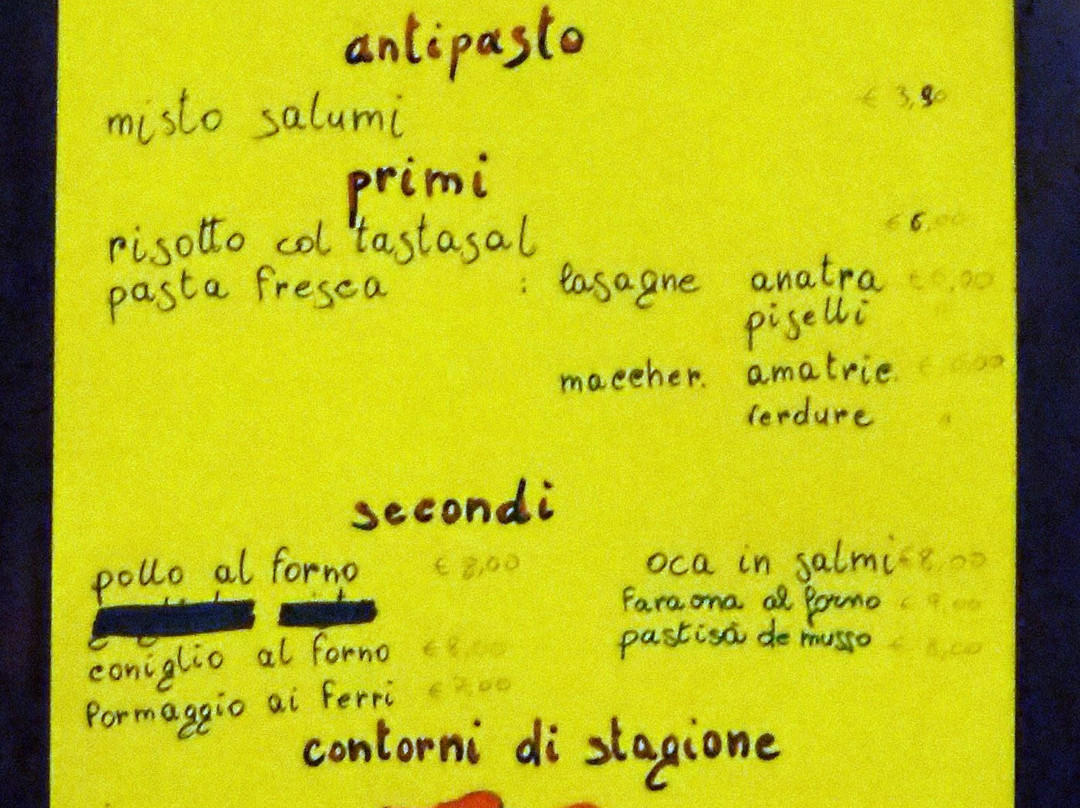 antipasto
misto salumi
primi
risotto col tastasal € 6,00
pasta fresca : lasagne anatra € 6,00
piselli "
maccher. amatric. € 6,00
verdure "
secondi
pollo al forno € 8,00 oca in salmi € 8,00
faraona al forno € 9,00
coniglio al forno € 8,00 pastisà de musso € 8,00
formaggio ai ferri € 7,00
contorni di stagione